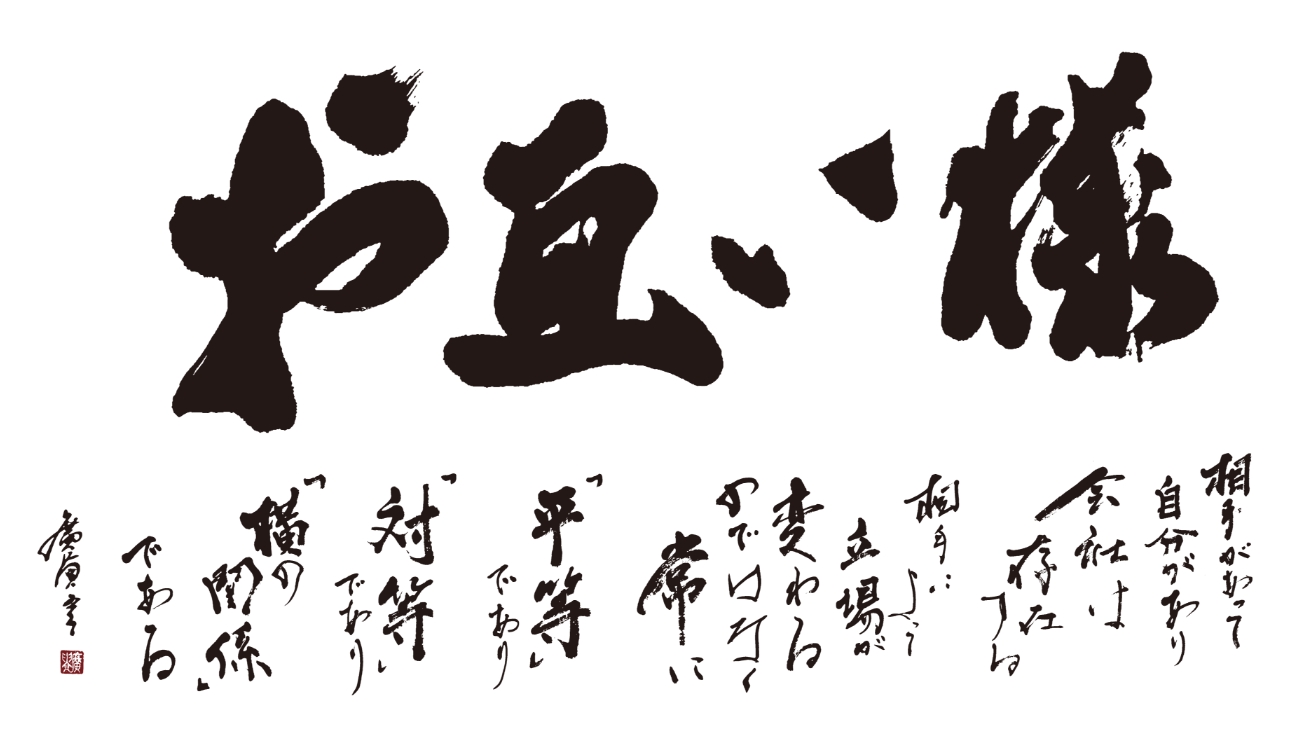 お互い様
相手があって
自分があり
会社は
存在する
相手によって
立場が
変わる
のではなく
常に
「平等」
であり
「対等」
であり
「横の
関係」
である